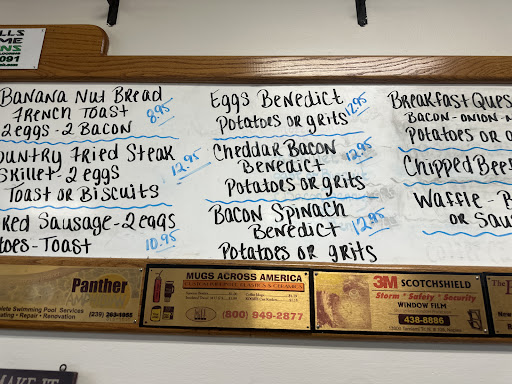 LLS
ME
NS
091
Banana Nut Bread
French Toast
2 eggs - 2 Bacon
8.95
ountry Fried Steak
Skillet - 2 eggs
Toast or Biscuits
12.95
ked Sausage - 2 eggs
toes - Toast
10.95
Eggs Benedict
Potatoes or grits
12.95
Cheddar Bacon
Benedict
Potatoes or grits
12.95
Bacon Spinach
Benedict
Potatoes or grits
12.95
Breakfast Ques
Bacon - onion -
Potatoes or
Chipped Beef
Waffle -
or Saus
Panther
lete Swimming Pool Services
ating • Repair • Renovation
(239)
MUGS ACROSS AMERICA
(800) 949-2877
3M SCOTCHSHIELD
Storm • Safety • Security
WINDOW FILM
438-8886
The
MAKE IT